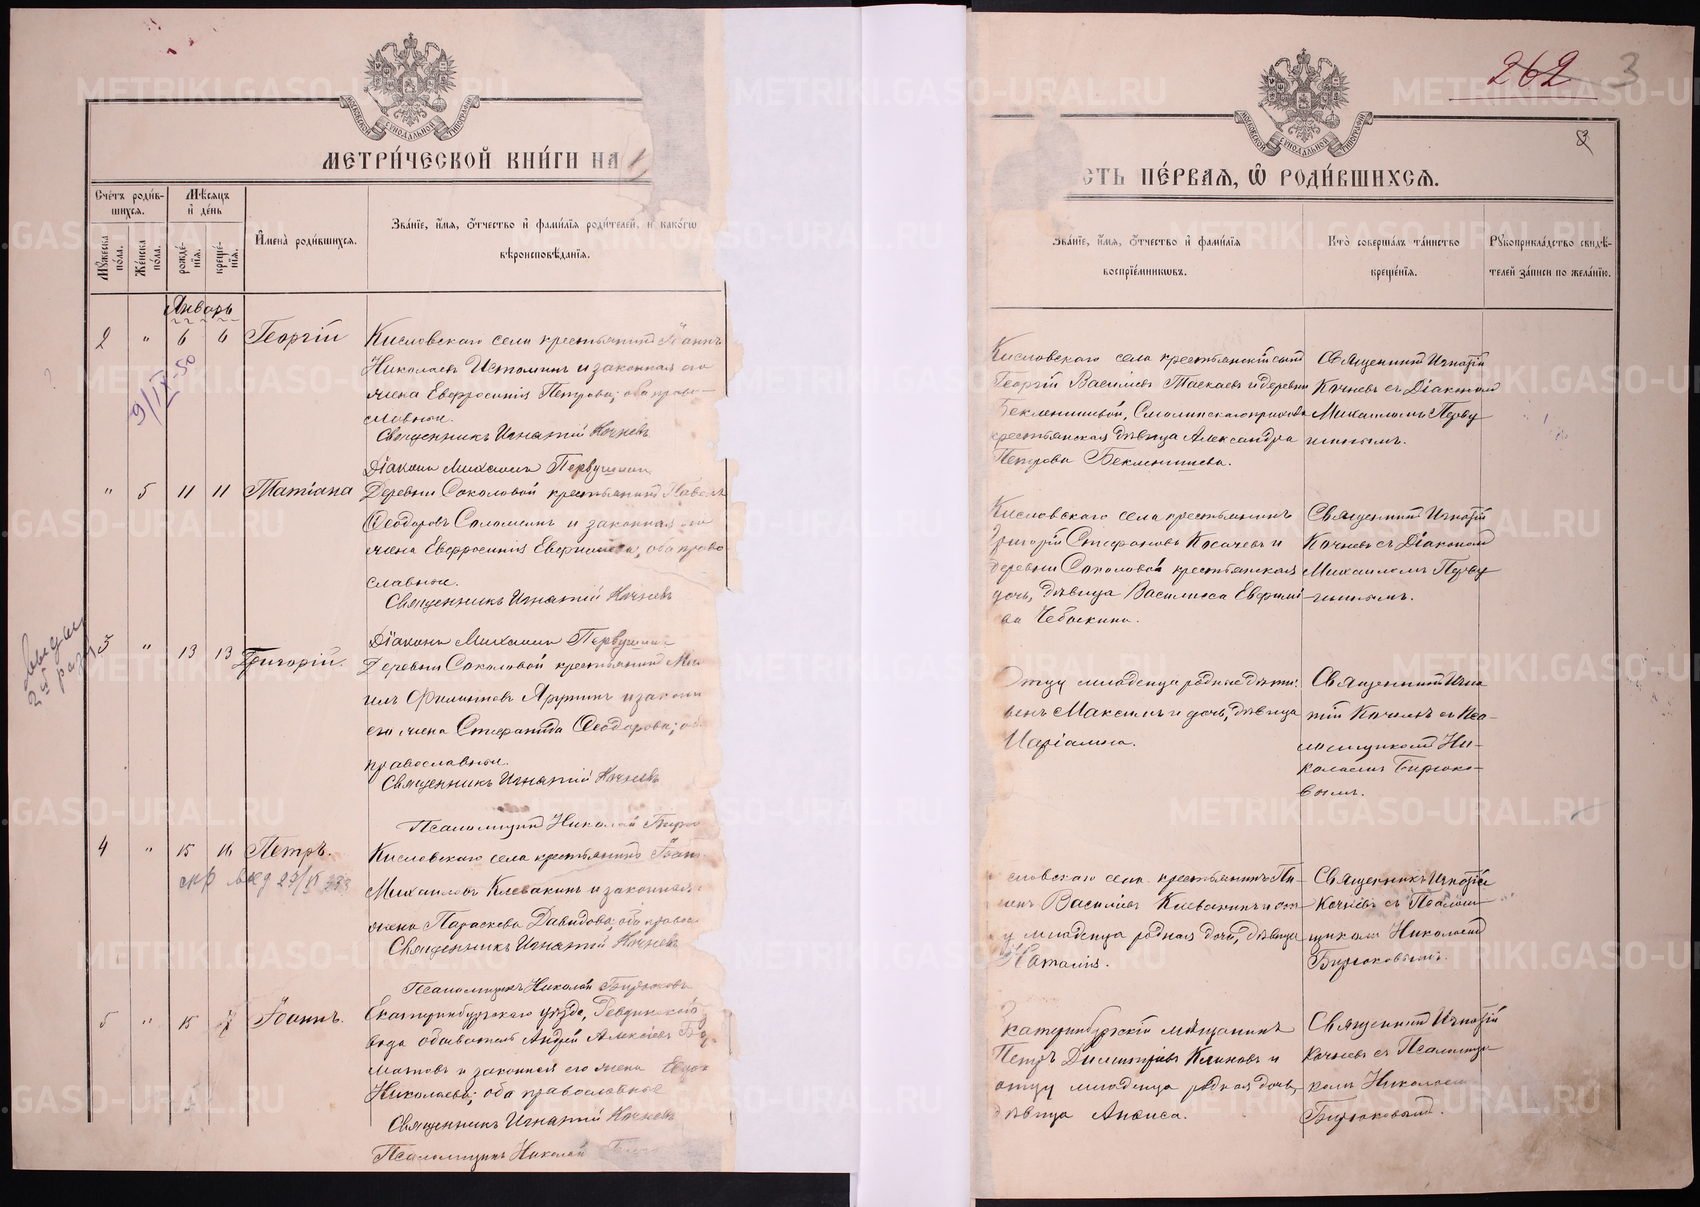 262 3
МОСКОВСКОЙ СѴНОДАЛЬНОЙ ТИПОГРАФІИ
МЕТРИ́ЧЕСКОЙ КНИ́ГИ НА 1
Сче́тъ роди́в-
шихсѧ.
Мꙋ́жеска по́ла.
Же́нска по́ла.
Мѣ́сѧцъ
и҆ де́нь
рожде́-
нїѧ.
креще́-
нїѧ.
И҆мена̀ роди́вшихсѧ.
Зва́нїе, и҆́мѧ, ѻ҆́тчество и҆ фами́лїѧ роди́телей, и҆ како́гѡ
вѣроисповѣ́данїѧ.
Январь
2 " 6 6 Георгій
Кисловскаго села крестьянинъ Іоаннъ
Николаевъ Истоминъ и законная его
жена Евфросинія Петрова; оба право-
славные.
Священникъ Игнатій Кочневъ
Діаконъ Михаилъ Первушинъ
9/IX-50
" 5 11 11 Татіана
Деревни Соколовой крестьянинъ Павелъ
Ѳеодоровъ Соломеинъ и законная его
жена Евфросинія, оба право-
славные.
Священникъ Игнатій Кочневъ
Діаконъ Михаилъ Первушинъ
2й разъ
3 " 13 13 Григорій.
Деревни Соколовой крестьянинъ
Филиповъ и законн
его жена Стефанида Ѳеодорова; оба
православные.
Священникъ Игнатій Кочневъ
Псаломщикъ Николай Бирю
4 " 15 16 Петръ.
Кисловскаго села крестьянинъ Іоан
Михаиловъ Клевакинъ и законная
жена Параскева Давидова; оба правос
Священникъ Игнатій Кочневъ
Псаломщикъ Николай Бирюковъ
5 " 15 Іоаннъ.
Екатеринбургскаго уѣзда, Ревдинскаго з
вода обыватель Андрей Алексіевъ
и законная его жена Евдок
Николаева; оба православные
Священникъ Игнатій Кочневъ
Псаломщикъ Николай
СТЬ ПЕ́РВАѦ, Ѽ РОДИ́ВШИХСѦ.
Зва́нїе, и҆́мѧ, ѻ҆́тчество и҆ фами́лїѧ
воспрїе́мникѡвъ.
Кто̀ соверша́лъ та́инство
креще́нїѧ.
Рꙋкоприкла́дство свидѣ́-
телей за́писи по жела́нїю.
Кисловскаго села крестьянскій сынъ
Георгій Василіевъ Таскаевъ и деревни
Бекленищевой, Смолинскаго прихода
крестьянская дѣвица Александра
Петрова Бекленищева.
Священникъ Игнатій
Кочневъ съ Діакономъ
Михаиломъ Перву-
шинымъ.
Кисловскаго села крестьянинъ
Григорій Стефановъ Косачевъ и
деревни Соколовой крестьянская
дочь, дѣвица Василиса Евфимі-
ва Чебыкина.
Священникъ Игнатій
Кочневъ съ Діакономъ
Михаиломъ Перву-
шинымъ.
Отцу младенца родные дѣти:
Максимъ и дочь, дѣвица
Маріамна.
Священникъ Игна-
тій Кочневъ съ Пса-
ломщикомъ Ни-
колаемъ Бирюко-
вымъ.
словскаго села крестьянинъ
Василіевъ Клевакинъ и от
у младенца родная дочь, дѣвица
Наталія.
Священникъ Игнатій
Кочневъ съ Псалом-
щикомъ Николаемъ
Бирюковымъ.
Екатеринбургскій мѣщанинъ
Петръ Димитріевъ Клиновъ и
отцу младенца родная дочь,
дѣвица Анфиса.
Священникъ Игнатій
Кочневъ съ Псаломщи-
комъ Николаемъ
Бирюковымъ.
METRIKI.GASO-URAL.RU